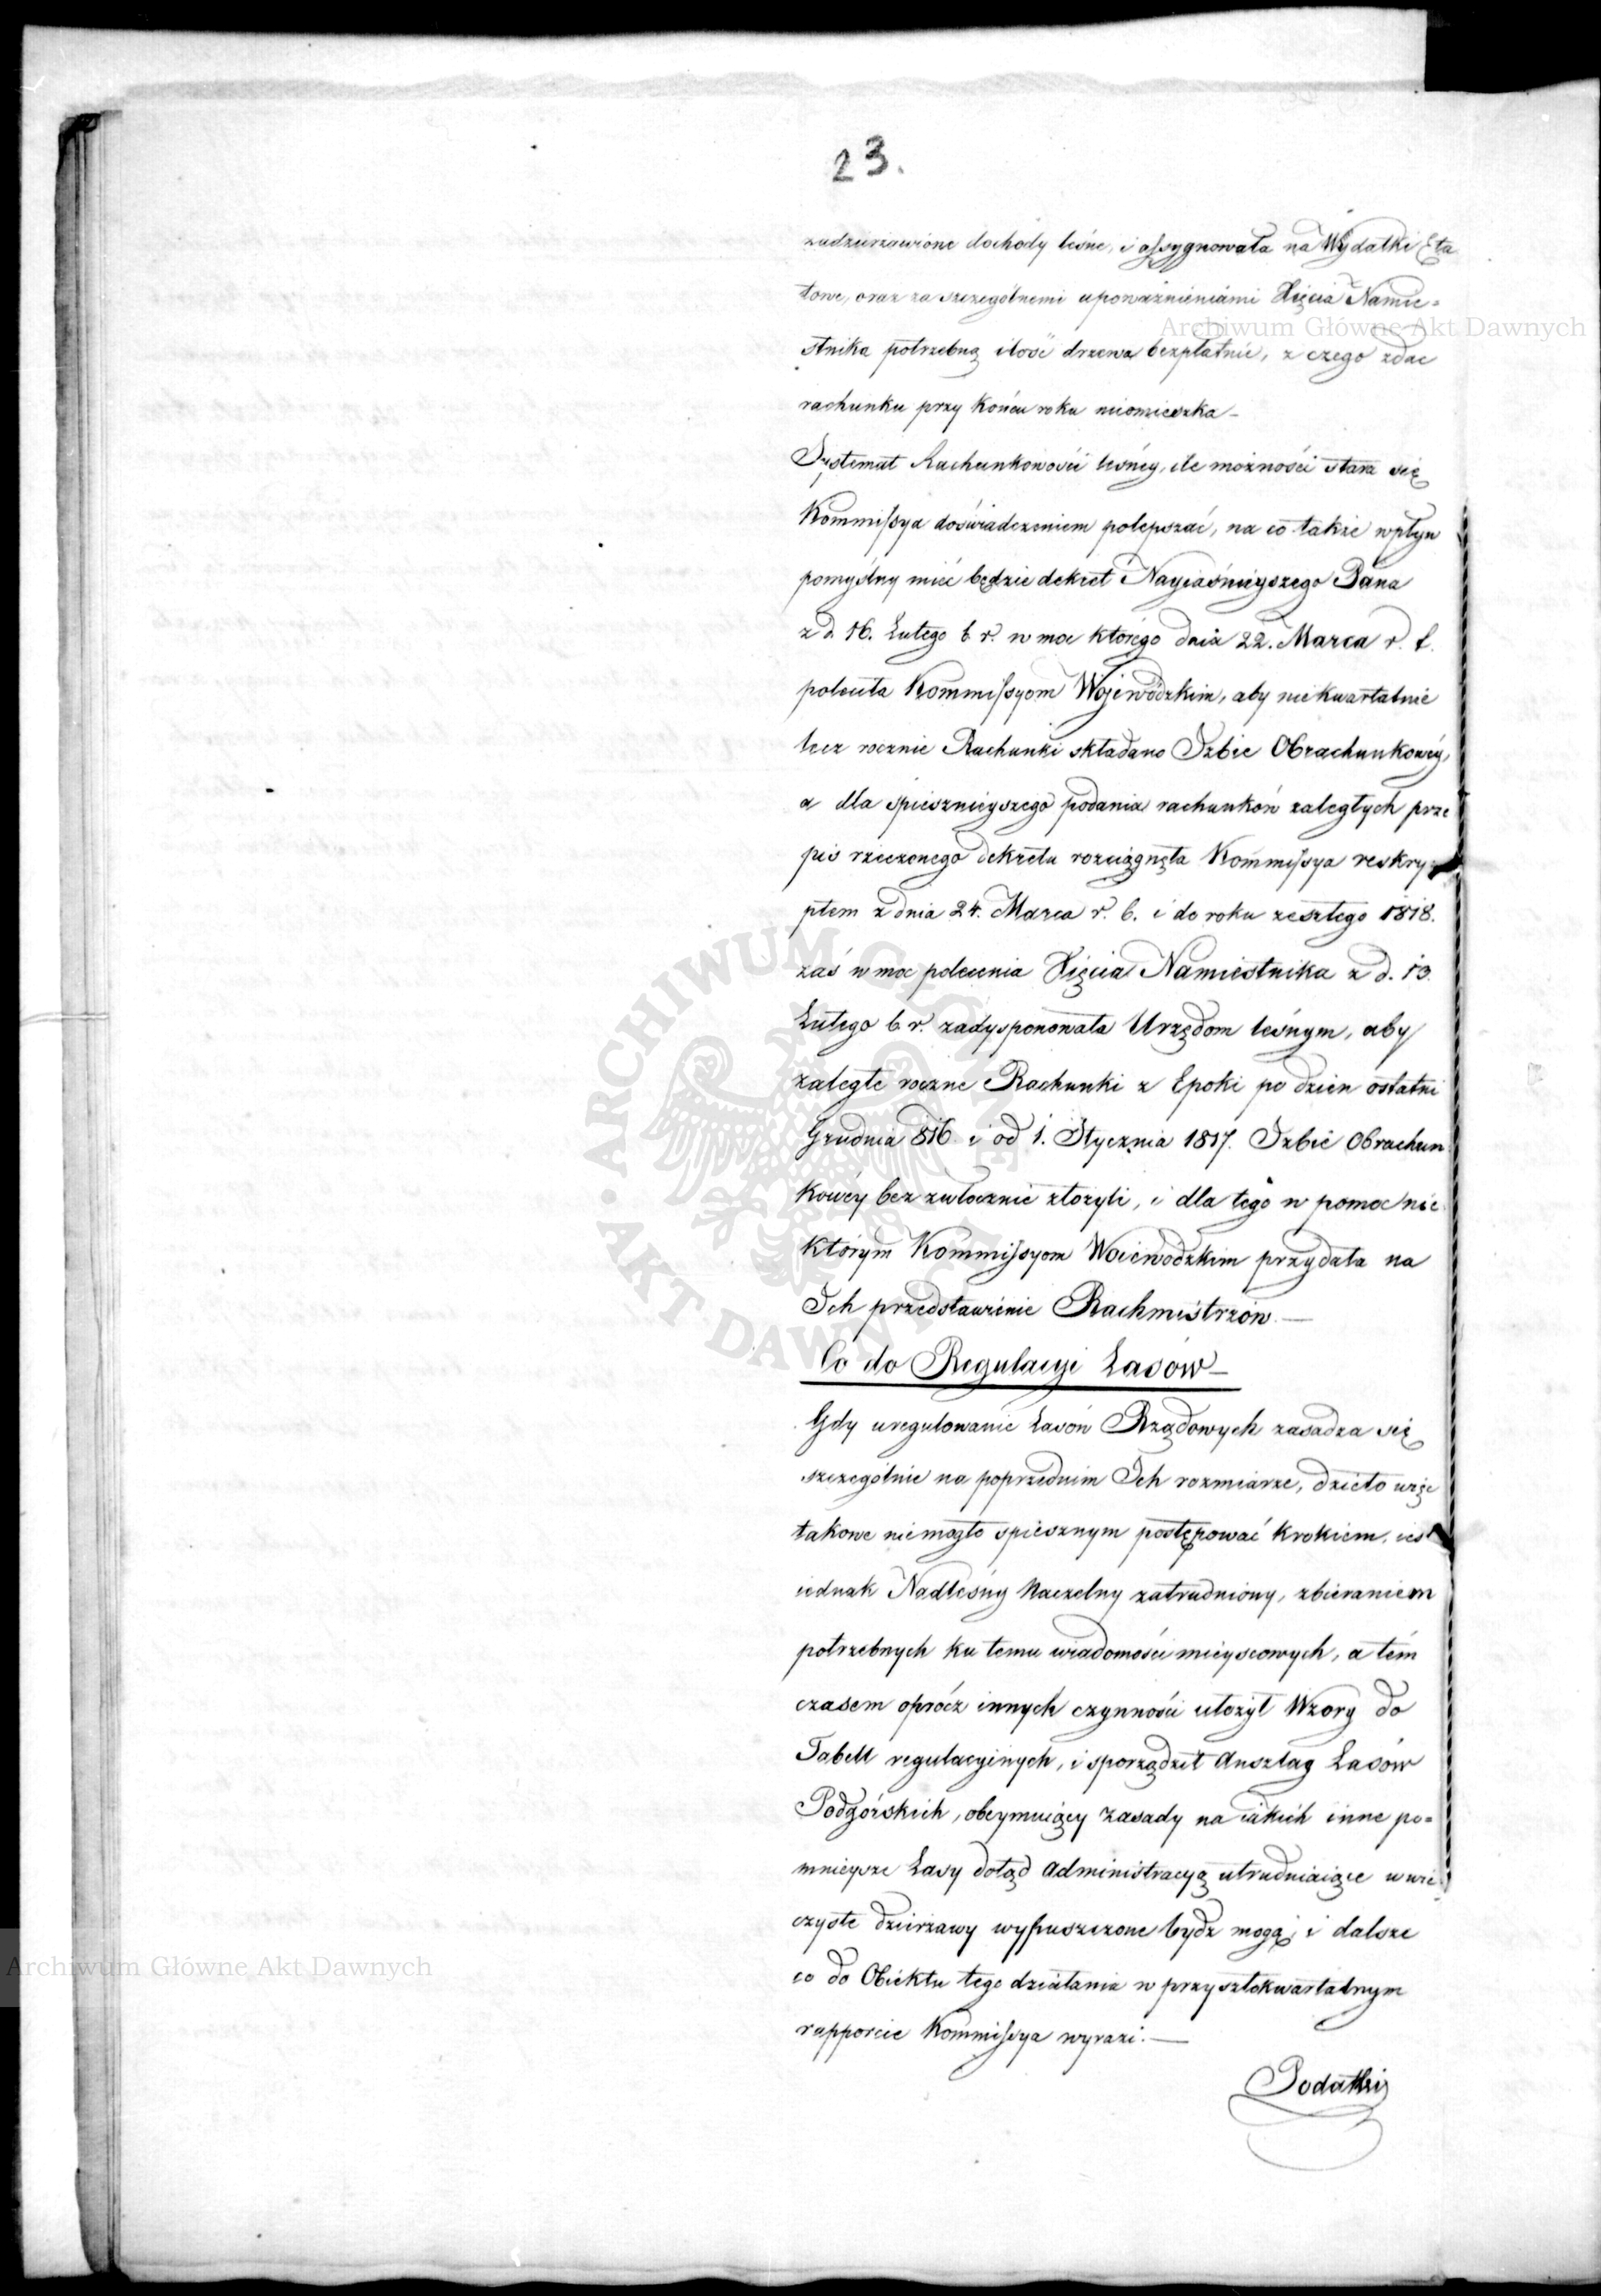 23.
zadzierzawione dochody leśne, i assygnowała na Wydatki Eta
towe, oraz za szczególnemi upoważnieniami Xięcia Namie=
stnika potrzebną ilość drzewa bezpłatnie, z czego zdać
rachunku przy Końcu roku nieomieszka –
Systemat Rachunkowości leśney, ile możności stara się
Kommissya doświadczeniem polepszać, na co także wpływ
pomyślny mieć będzie dekret Nayiaśnieyszego Pana
z d. 16. Lutego b. r. w moc którego dnia 22. Marca r. t.
poleciła Kommissyom Wojewódzkim, aby niekwartalnie
lecz rocznie Rachunki składano Izbie Obrachunkowéy,
a dla spiesznieyszego podania rachunków zaległych prze
pis rzeczonego dekretu rozciągnęła Kommissya reskry
ptem z dnia 24. Marca r. b. i do roku zeszłego 1818.
zaś w moc polecenia Xięcia Namiestnika z d. 13.
Lutego b. r. zadysponowała Urzędom leśnym, aby
zaległe roczne Rachunki z Epoki po dzien ostatni
Grudnia 816 i od 1. Stycznia 1817. Izbie Obrachun
kowéy bez zwłocznie złożyli, i dla tego w pomoc nie
którym Kommissyom Woiewodzkim przydała na
Ich przedstawienie Rachmistrzów. —
Co do Regulacyi Lasów –
Gdy uregulowanie Lasów Rządowych zasadza się
szczególnie na poprzednim Ich rozmiarze, dzieło więc
takowe niemogło spiesznym postępować krokiem, iest
iednak Nadleśny Naczelny zatrudniony, zbieraniem
potrzebnych ku temu wiadomości mieyscowych, a tém
czasem oprócz innych czynności ułożył Wzory do
Tabell regulacyinych, i sporządził Anszlag Lasów
Podgórskich, obeymuiący zasady na iakich inne po=
mnieysze Lasy dotąd Administracyą utrudniaiące w wie
czyste dzierżawy wypuszczone bydz mogą, i dalsze
co do Obiektu tego działania w przyszłokwartalnym
rapporcie Kommissya wyrazi. —
Podatki
Archiwum Główne Akt Dawnych
Archiwum Główne Akt Dawnych